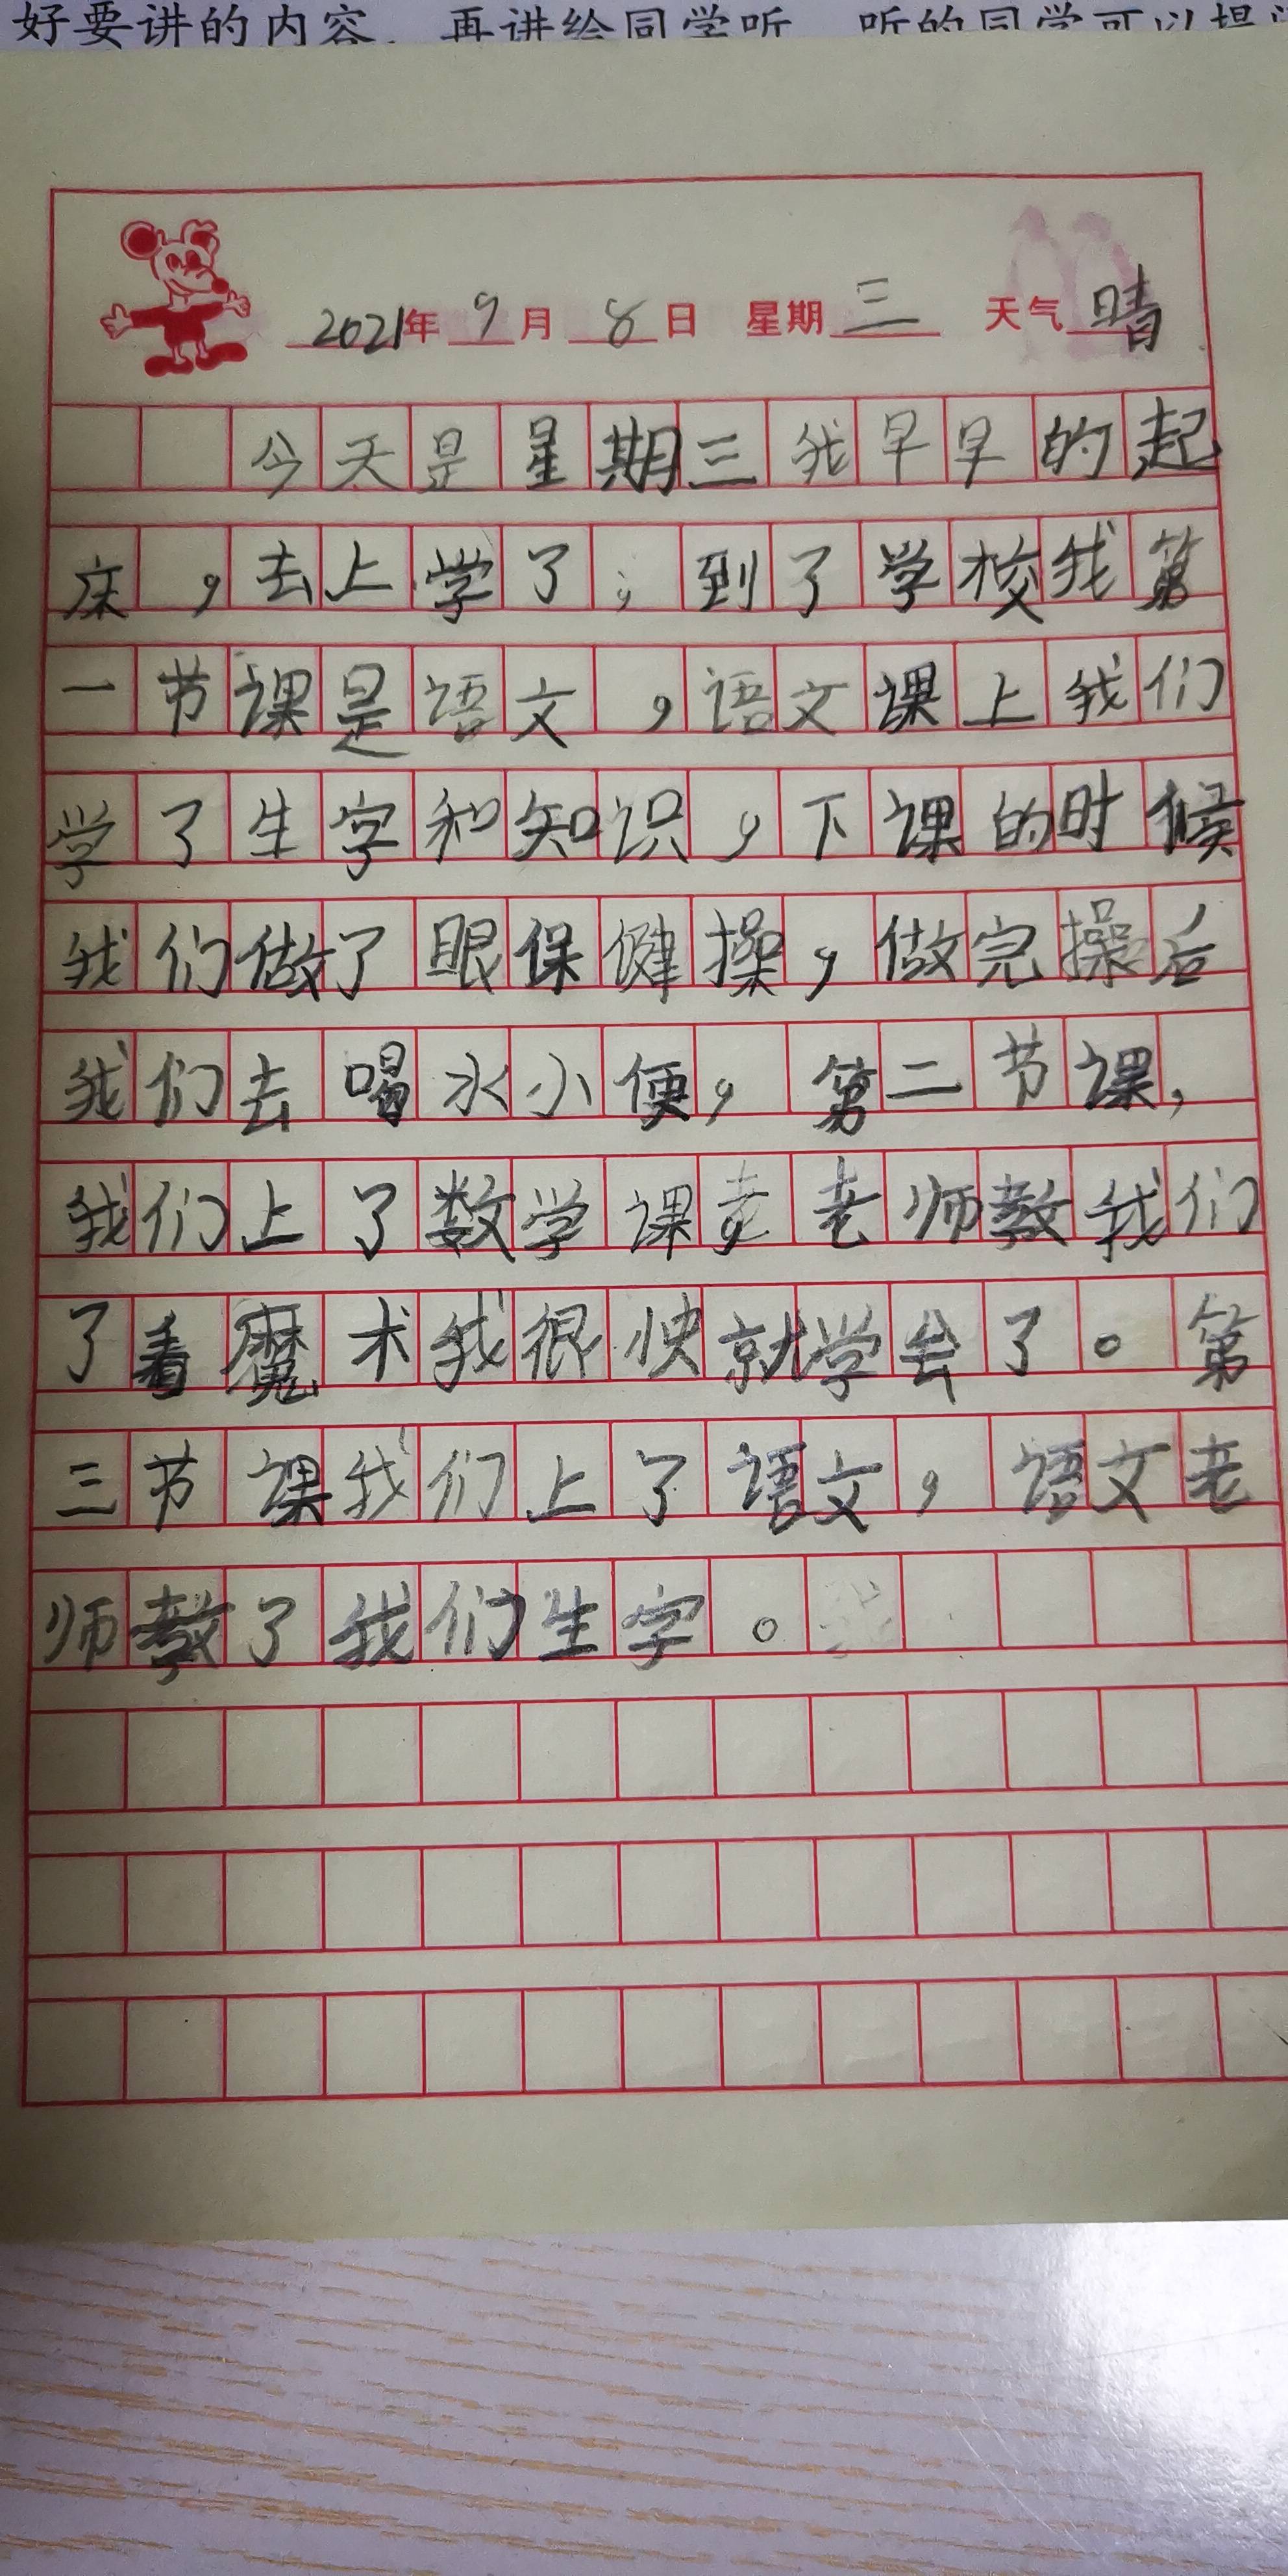 好要讲的内容，再讲给同学听。听的同学可以提
2021年9月8日 星期三 天气晴
今天是星期三我早早的起
床，去上学了，到了学校我第
一节课是语文，语文课上我们
学了生字和知识，下课的时候
我们做了眼保健操，做完操后
我们去喝水小便，第二节课，
我们上了数学课老老师教我们
了看魔术我很快就学会了。第
三节课我们上了语文，语文老
师教了我们生字。